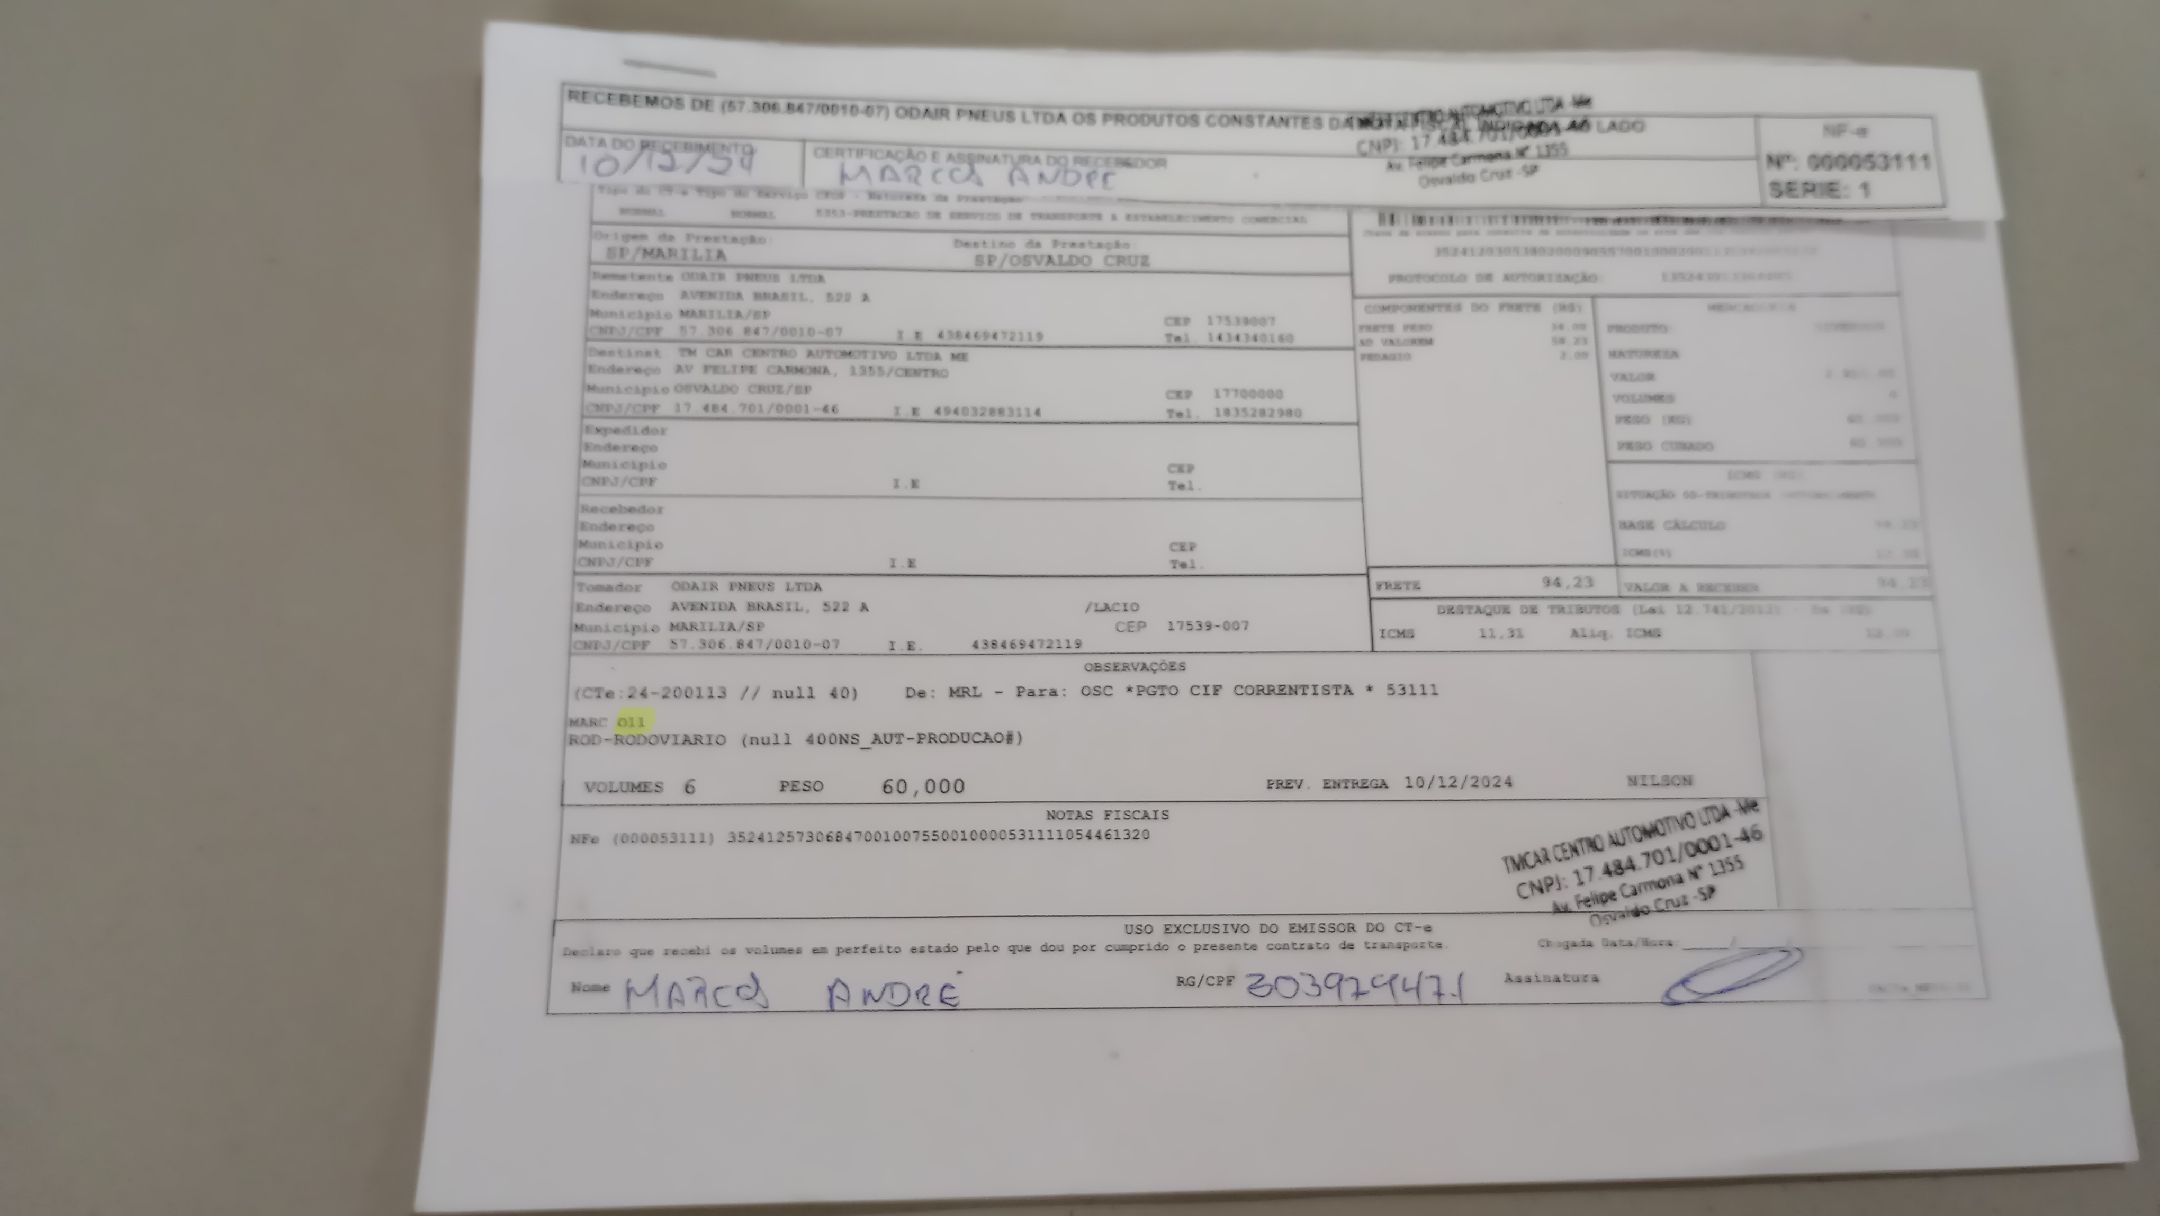 RECEBEMOS DE (57.306.847/0010-07) ODAIR PNEUS LTDA OS PRODUTOS CONSTANTES DA NOTA FISCAL INDICADA AO LADO
CENTRO AUTOMOTIVO LTDA -Me
CNPJ: 17.484.701/0001
Av. Felipe Carmona N° 1355
Osvaldo Cruz -SP
DATA DO RECEBIMENTO:
10/12/24
CERTIFICAÇÃO E ASSINATURA DO RECEBEDOR
MARCOS ANDRE
NF-e
Nº: 000053111
SERIE: 1
Tipo do CT-e Tipo do Serviço CFOP - Natureza da Prestação
NORMAL NORMAL 5353-PRESTACAO DE SERVICO DE TRANSPORTE A ESTABELECIMENTO COMERCIAL
Origem da Prestação:
SP/MARILIA
Destino da Prestação:
SP/OSVALDO CRUZ
PROTOCOLO DE AUTORIZAÇÃO:
Remetente ODAIR PNEUS LTDA
Endereço AVENIDA BRASIL, 522 A
Município MARILIA/SP CEP 17539007
CNPJ/CPF 57.306.847/0010-07 I.E 438469472119 Tel. 1434340160
Destinat TM CAR CENTRO AUTOMOTIVO LTDA ME
Endereço AV FELIPE CARMONA, 1355/CENTRO
Município OSVALDO CRUZ/SP CEP 17700000
CNPJ/CPF 17.484.701/0001-46 I.E 494032883114 Tel. 1835282980
Expedidor
Endereço
Município CEP
CNPJ/CPF I.E Tel.
Recebedor
Endereço
Município CEP
CNPJ/CPF I.E Tel.
Tomador ODAIR PNEUS LTDA
Endereço AVENIDA BRASIL, 522 A /LACIO
Município MARILIA/SP CEP 17539-007
CNPJ/CPF 57.306.847/0010-07 I.E. 438469472119
COMPONENTES DO FRETE (R$)
FRETE PESO 34.00
AD VALOREM 58.23
PEDAGIO 2.00
MERCADORIA
PRODUTO
NATUREZA
VALOR
VOLUMES
PESO (KG)
PESO CUBADO
ICMS (R$)
BASE CÁLCULO 94.23
ICMS(%)
FRETE 94,23 VALOR A RECEBER 94,23
DESTAQUE DE TRIBUTOS (Lei 12.741/2012)
ICMS 11,31 Aliq. ICMS
OBSERVAÇÕES
(CTe:24-200113 // null 40) De: MRL - Para: OSC *PGTO CIF CORRENTISTA * 53111
MARC 011
ROD-RODOVIARIO (null 400NS_AUT-PRODUCAO#)
VOLUMES 6 PESO 60,000 PREV. ENTREGA 10/12/2024 NILSON
NOTAS FISCAIS
NFe (000053111) 35241257306847001007550010000531111054461320
TMCAR CENTRO AUTOMOTIVO LTDA -Me
CNPJ: 17.484.701/0001-46
Av. Felipe Carmona N° 1355
Osvaldo Cruz -SP
USO EXCLUSIVO DO EMISSOR DO CT-e
Declaro que recebi os volumes em perfeito estado pelo que dou por cumprido o presente contrato de transporte. Chegada Data/Hora:____/
Nome MARCOS ANDRE RG/CPF 303979471 Assinatura